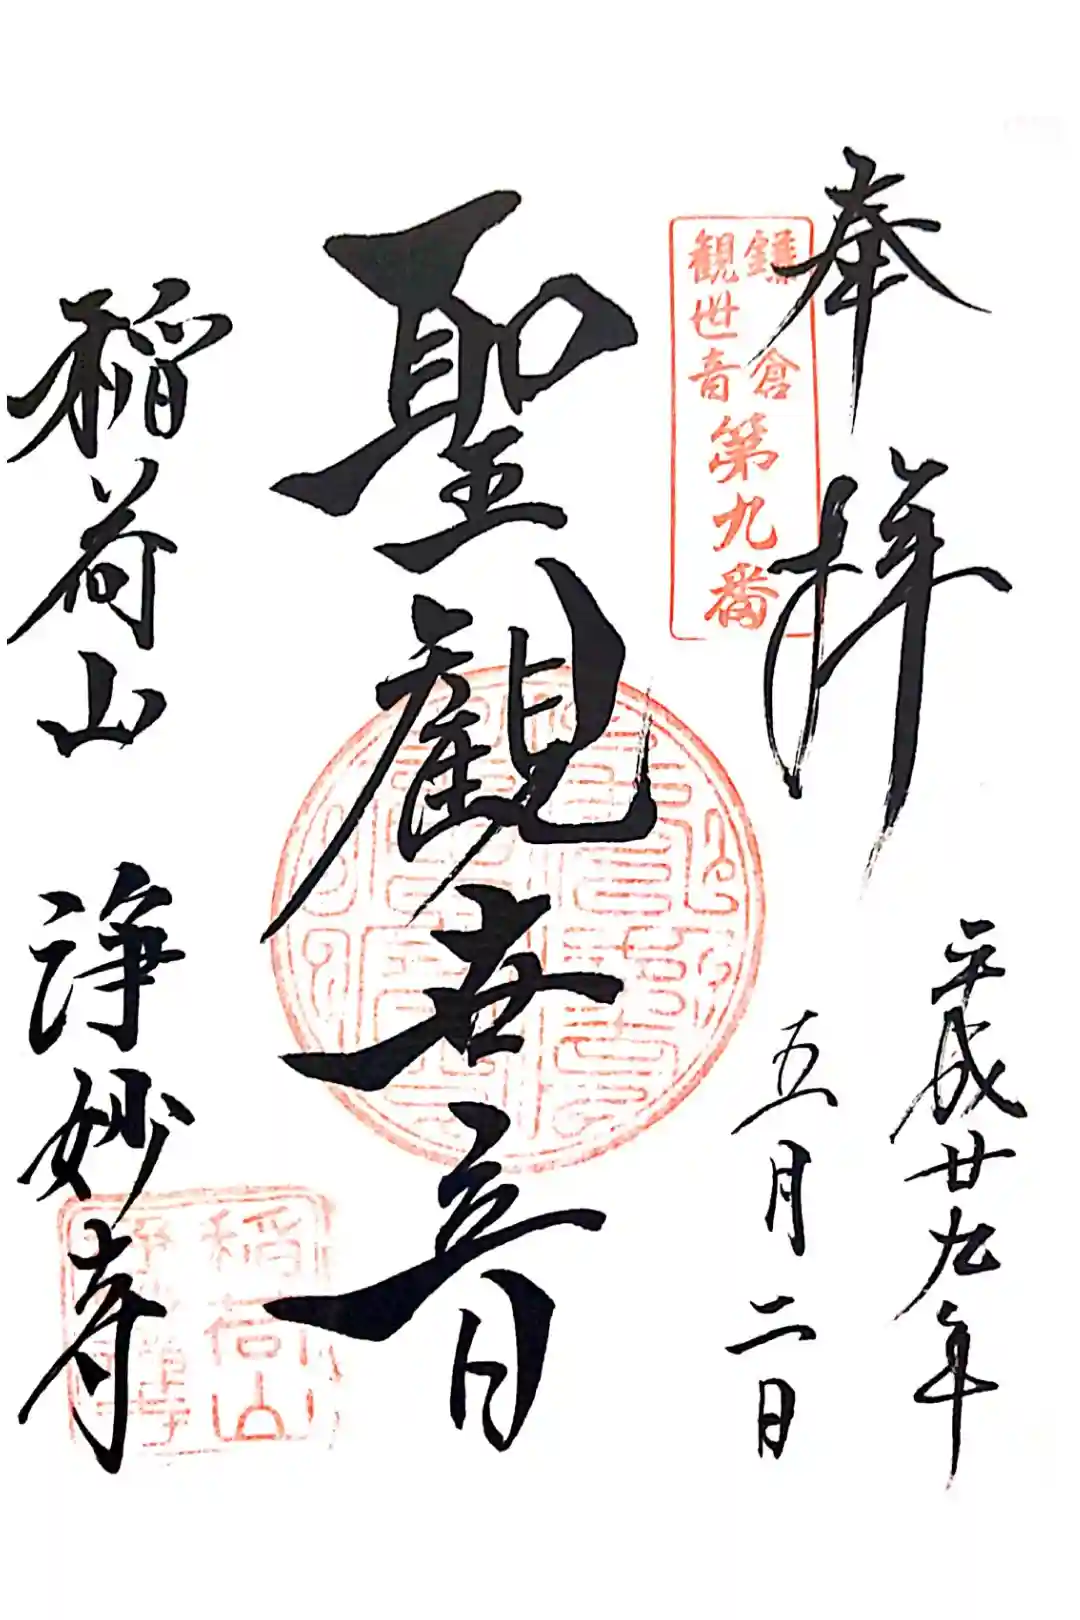 奉拝
平成廿九年
五月二日
鎌倉
観世音
第九番
聖観世音
稲荷山 浄妙寺
稲荷山